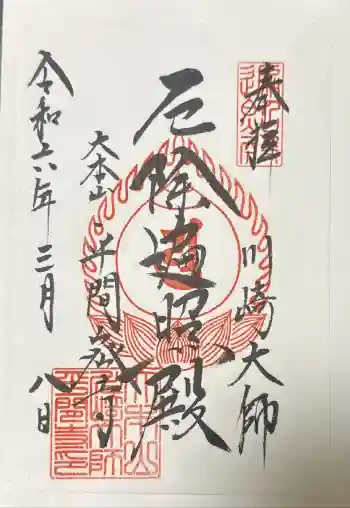 奉拝
川崎大師
厄除遍照殿
大本山
平間寺
令和六年三月八日